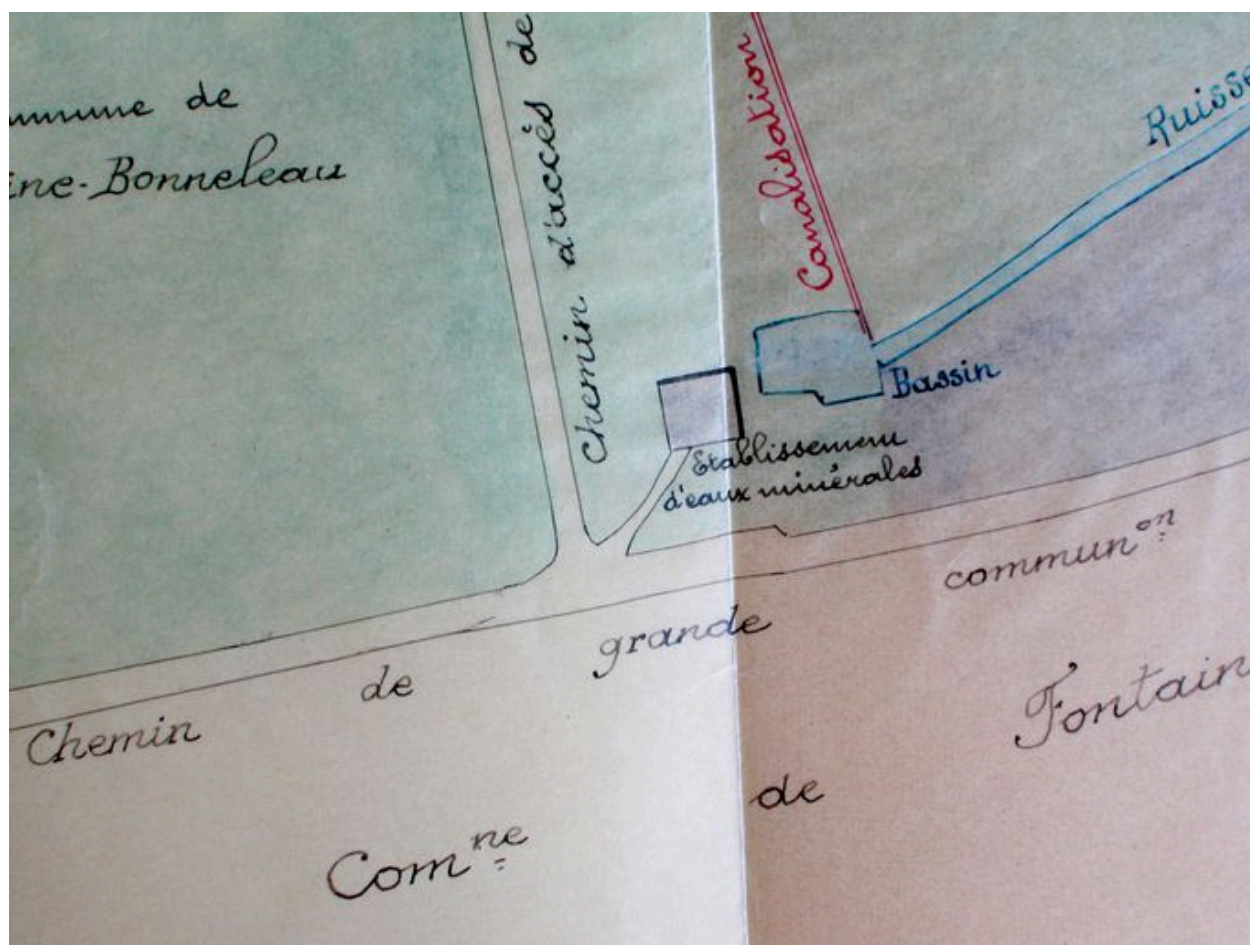 mmune de
ine-Bonneleau
Chemin d'accès de
Canalisation
Ruisse
Bassin
Etablissement
d'eaux minérales
Chemin de grande commun^on
Com^ne de Fontain